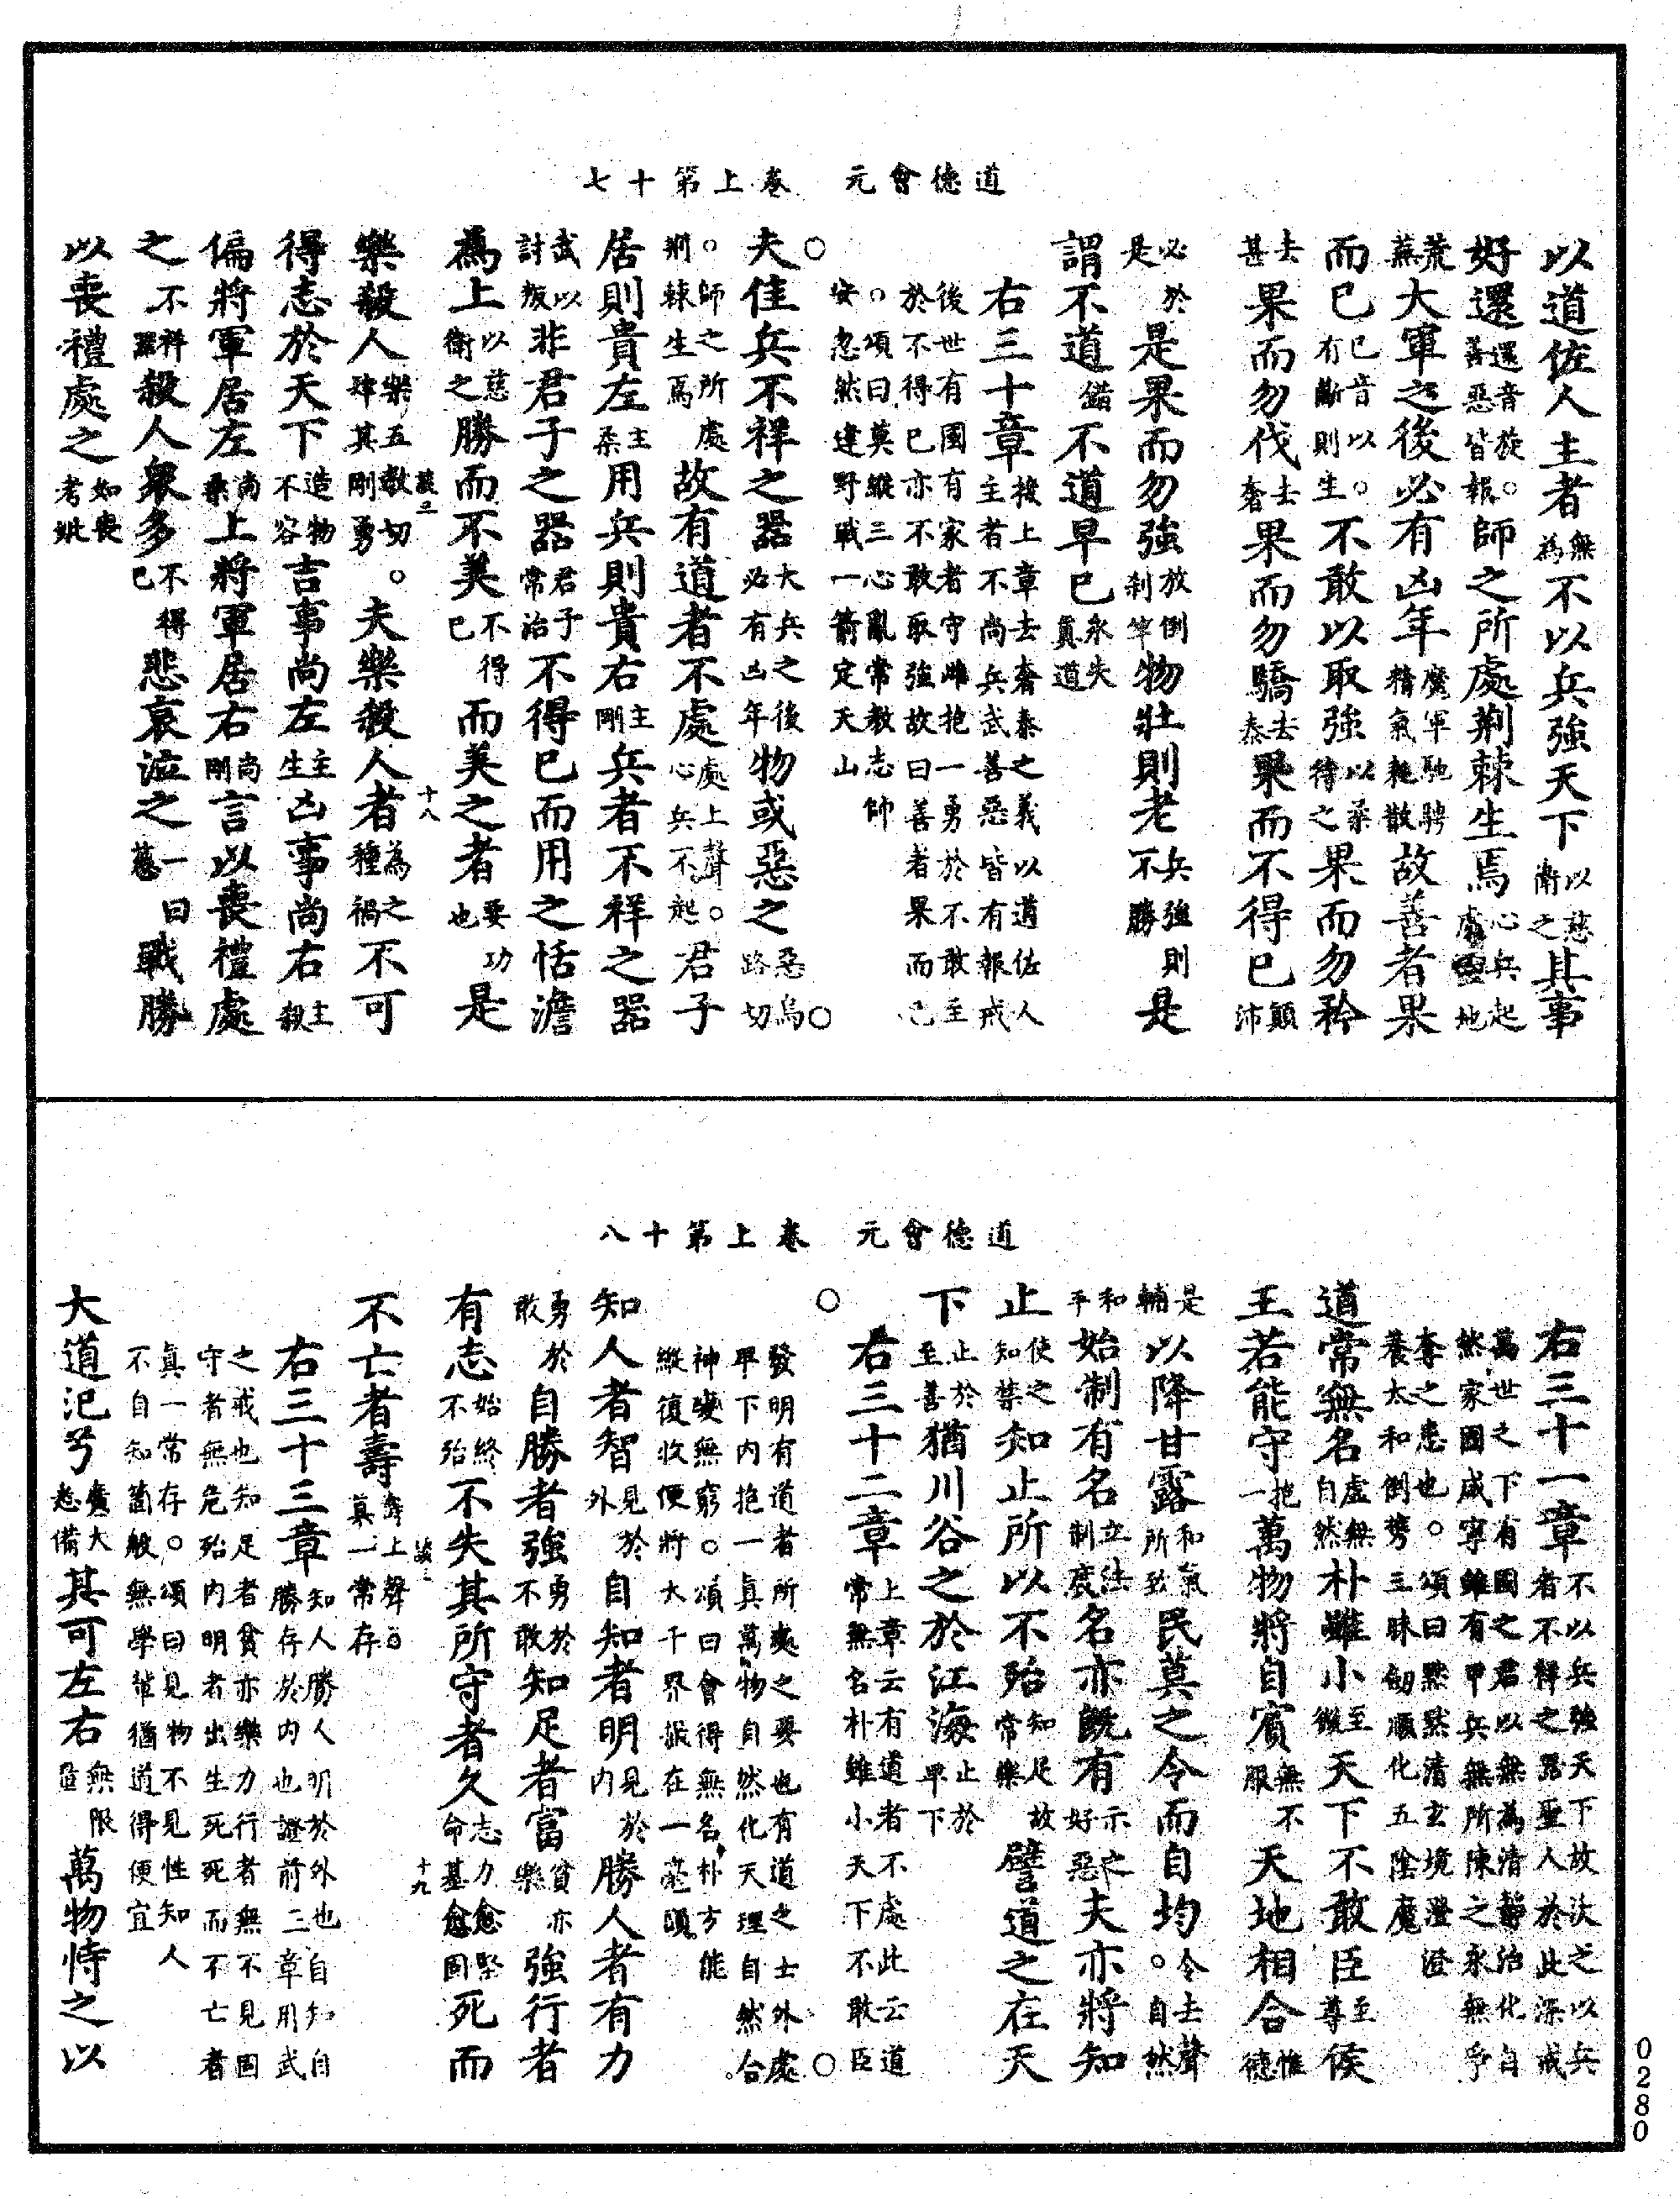 道德會元　卷上第十七
以道佐人主者無為不以兵強天下以慈衛之其事
好還還音旋。善惡皆報師之所處荊棘生焉心兵起處地
荒蕪大軍之後必有凶年魔軍馳騁精氣耗散故善者果
而已已音以。有斷則生不敢以取強以柔待之果而勿矜
去甚果而勿伐去奢果而勿驕去泰果而不得已顛沛
必於是是果而勿強放倒剎竿物壯則老兵強則不勝是
謂不道錯不道早已永失真道
右三十章按上章去奢泰之義以道佐人主者不尚兵武善惡皆有報戒
後世有國有家者守雌抱一勇於不敢至於不得已亦不敢取強故曰善者果而已
。頌曰莫縱三心亂常教志帥安忽然達野戰一箭定天山
○夫佳兵不祥之器大兵之後必有凶年物或惡之惡烏路切○
。師之所處荊棘生焉故有道者不處處上聲。心兵不起君子
居則貴左主柔用兵則貴右主剛兵者不祥之器
武以討叛非君子之器君子常治不得已而用之恬澹
為上以慈衛之勝而不美不得已而美之者要功也是
十八
樂殺人樂五教切。肆其剛勇夫樂殺人者為之種禍不可
得志於天下造物不容吉事尚左主生凶事尚右主殺
偏將軍居左尚柔上將軍居右尚剛言以喪禮處
之不祥器殺人眾多不得已悲哀泣之一曰慈戰勝
以喪禮處之如喪考妣
道德會元　卷上第十八
右三十一章不以兵強天下故次之以兵者不祥之器聖人於此深戒
萬世之下有國之君以無為清靜治化自然家國咸寧雖有甲兵無所陳之永無爭
奪之患也。頌曰默默清玄境澄澄養太和倒攜三昧劍順化五陰魔
道常無名虛無自然朴雖小至微天下不敢臣至尊侯
王若能守抱一萬物將自賓無不服天地相合惟德
是輔以降甘露和氣所致民莫之令而自均。令去聲自然
和平始制有名立法制度名亦既有示之好惡夫亦將知
止使之知禁知止所以不殆知足故常樂譬道之在天
下止於至善猶川谷之於江海止於卑下
○右三十二章上章云有道者不處此云道常無名朴雖小天下不敢臣○
發明有道者所處之要也有道之士外處卑下內抱一真萬物自然化天理自然合。
神變無窮。頌曰會得無名朴方能縱復收便將大千界撮在一毫頭
知人者智見於外自知者明見於內勝人者有力
勇於敢自勝者強勇於不敢知足者富貧亦樂強行者
十九
有志始終不殆不失其所守者久志力愈堅命基愈固死而
不亡者壽壽上聲。真一常存
右三十三章知人勝人明於外也自知自勝存於內也證前二章用武
之戒也知足者貧亦樂力行者無不見固守者無危殆內明者出生死死而不亡者
真一常存。頌曰見物不見性知人不自知箇般無學輩猶道得便宜
大道汜兮廣大悉備其可左右無限量萬物恃之以
0280